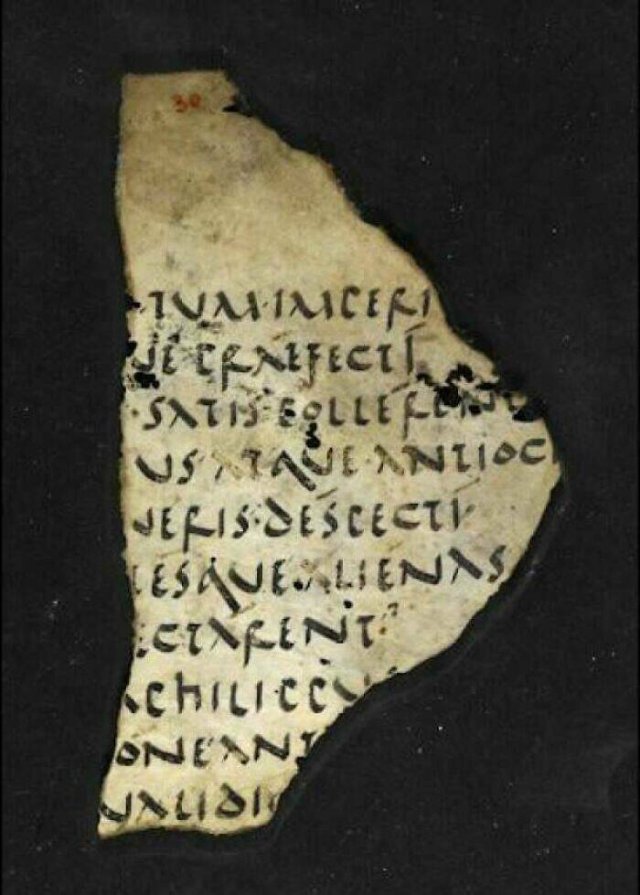 30
TUM·IMPERI
UE PRAEFECTI
·SATIS·POLLERENT
US ATQUE·ANTIOC
UERIS·DESPECTI
ESQUE·ALIENAS
CTARENT
PHILIPPU
ONE ANT
UALIDI